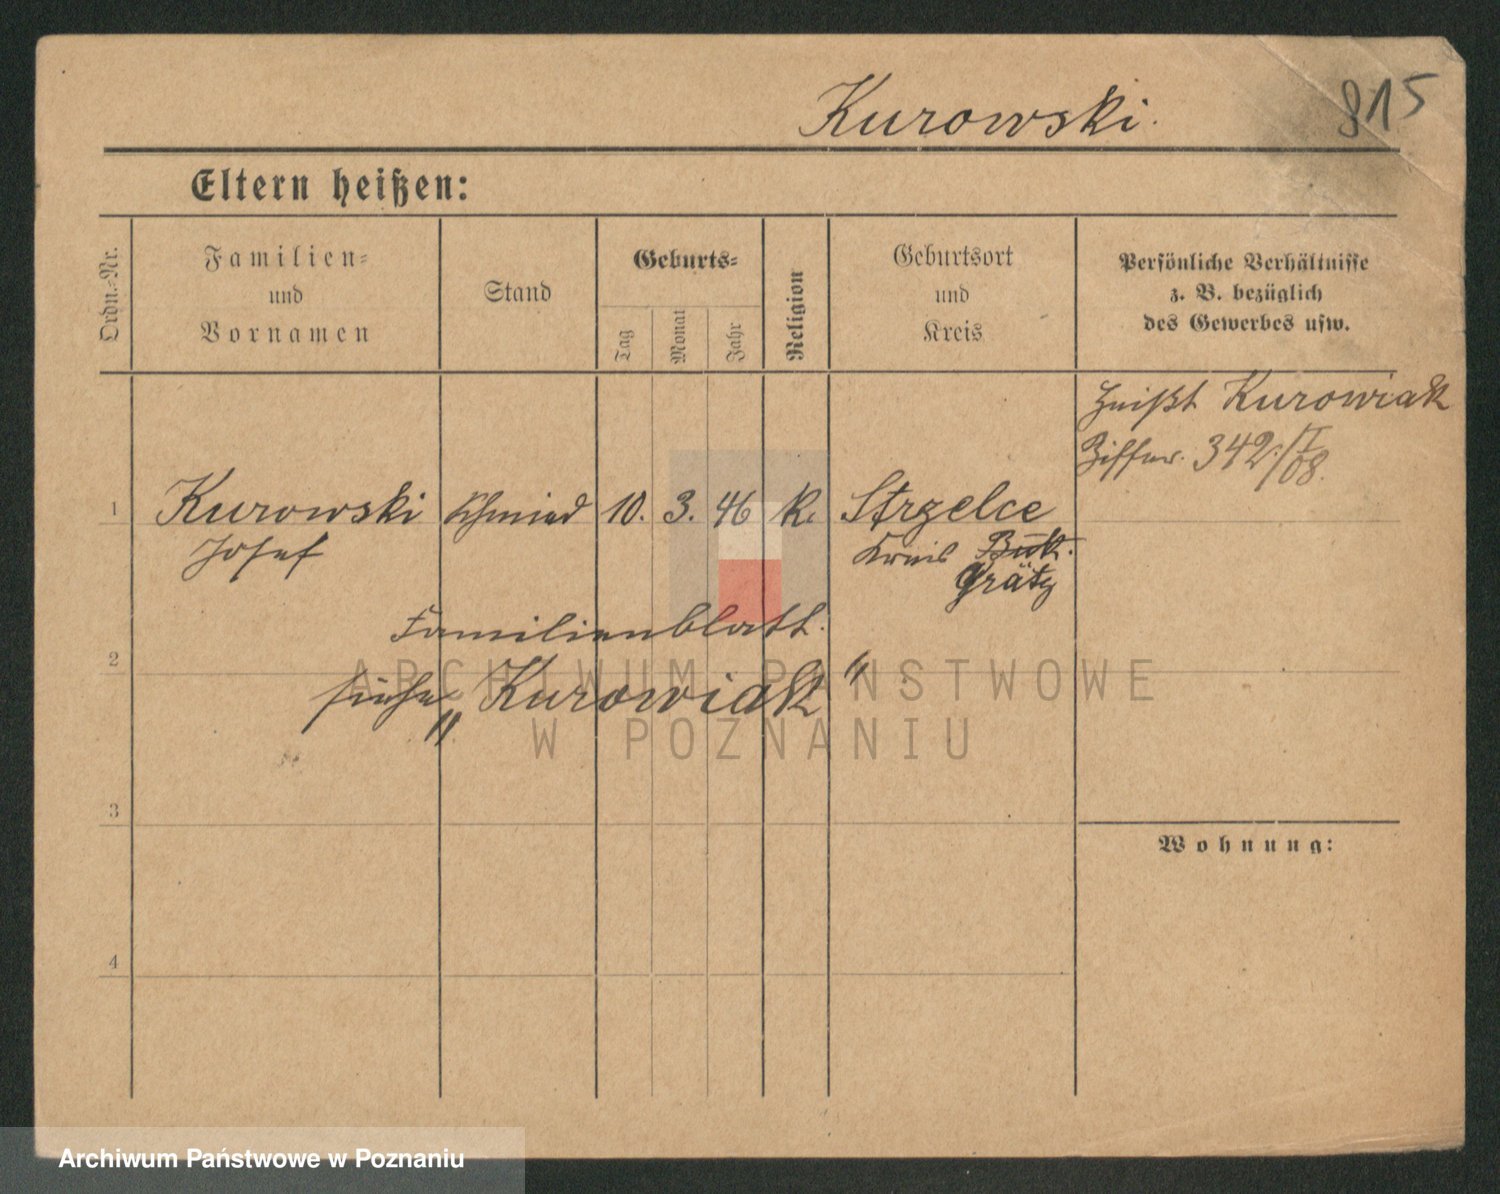 Kurowski.
815
Eltern heißen:
Ordn.=Nr.
Familien=
und
Vornamen
Stand
Geburts=
Tag
Monat
Jahr
Religion
Geburtsort
und
Kreis
Persönliche Verhältnisse
z. B. bezüglich
des Gewerbes usw.
heißt Kurowiak
Ziffer. 342./I/08.
1 Kurowski Schmied 10. 3. 46 K. Strzelce
Josef Kreis Buk.
Grätz
Familienblatt
2
siehe „Kurowiak“
3
Wohnung:
4
ARCHIWUM PAŃSTWOWE
W POZNANIU
Archiwum Państwowe w Poznaniu